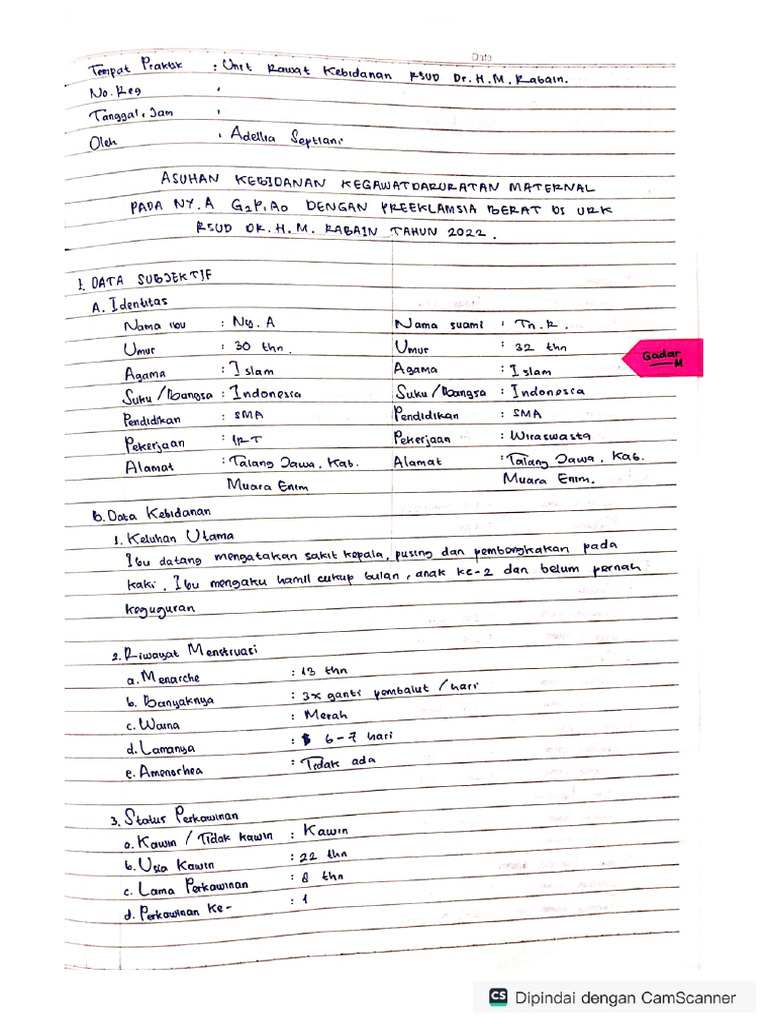 Date
Tempat Praktik : Unit Rawat Kebidanan RSUD Dr. H. M. Rabain.
No. Reg :
Tanggal, Jam :
Oleh : Adellia Septiani
ASUHAN KEBIDANAN KEGAWATDARURATAN MATERNAL
PADA NY. A G2P1A0 DENGAN PREEKLAMSIA BERAT DI URK
RSUD DR. H. M. RABAIN TAHUN 2022.
1. DATA SUBJEKTIF
A. Identitas
Nama ibu : Ny. A Nama suami : Tn. R.
Umur : 30 thn. Umur : 32 thn
Gadar M
Agama : Islam Agama : Islam
Suku / Bangsa : Indonesia Suku / Bangsa : Indonesia
Pendidikan : SMA Pendidikan : SMA
Pekerjaan : IRT Pekerjaan : Wiraswasta
Alamat : Talang Jawa, Kab. Alamat : Talang Jawa, Kab.
Muara Enim Muara Enim.
B. Data Kebidanan
1. Keluhan Utama
Ibu datang mengatakan sakit kepala, pusing dan pembengkakan pada
kaki. Ibu mengaku hamil cukup bulan, anak ke-2 dan belum pernah
keguguran
2. Riwayat Menstruasi
a. Menarche : 13 thn
b. Banyaknya : 3x ganti pembalut / hari
c. Warna : Merah
d. Lamanya : 6-7 hari
e. Amenorhea : Tidak ada
3. Status Perkawinan
a. Kawin / Tidak kawin : Kawin
b. Usia Kawin : 22 thn
c. Lama Perkawinan : 8 thn
d. Perkawinan Ke- : 1
CS Dipindai dengan CamScanner